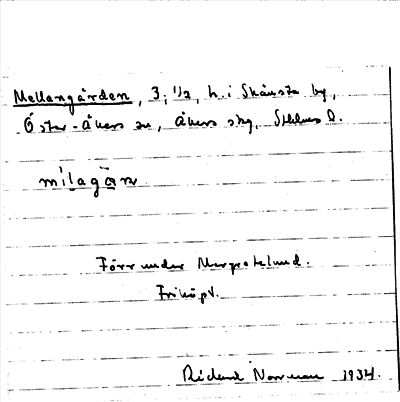 Mellangården, 3; 1/2, h. i Skånsta by,
Öster-Åkers sn, Åkers skg, Sthlms l.
mílagā̀ṇ
Förr under Margretelund.
Friköpt.
Rickard Norrman 1934.